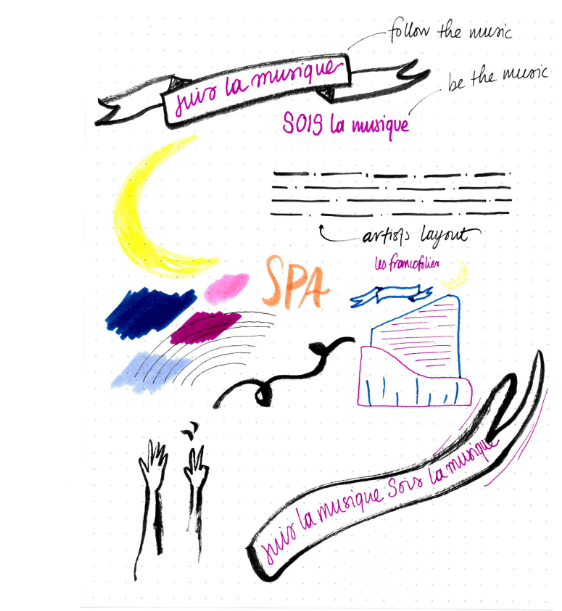 follow the music
suis la musique
be the music
SOIS la musique
artists layout
les francofolies
SPA
suis la musique Sois la musique